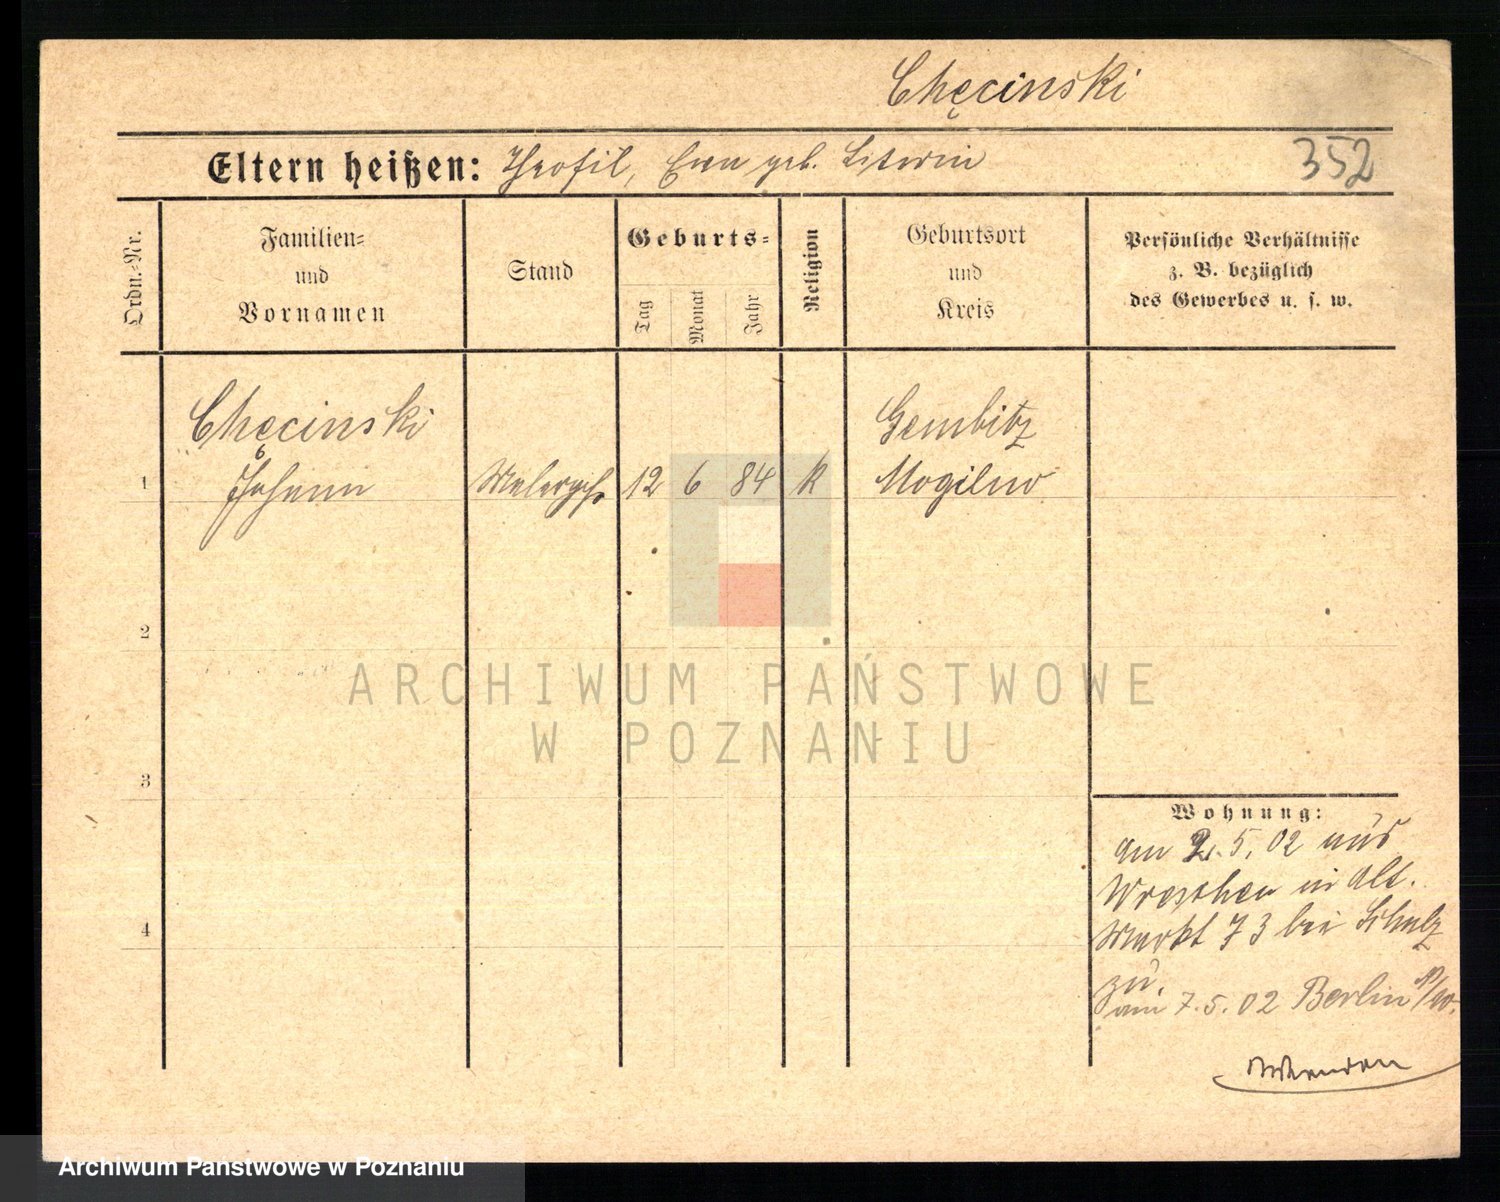 Chęcinski
Eltern heißen: Theofil, Eva geb. Literin
352
Ordn.=Nr.
Familien=
und
Vornamen
Stand
Geburts=
Tag
Monat
Jahr
Religion
Geburtsort
und
Kreis
Persönliche Verhältnisse
z. B. bezüglich
des Gewerbes u. s. w.
Chęcinski
Johann
Gembitz
1
Malergeh.
12
6
84
K
Mogilno
2
3
4
Wohnung:
am 2.5.02 aus
Wreschen in Alt.
Markt 73 bei Schulz
zu.
am 7.5.02 Berlin
ARCHIWUM PAŃSTWOWE
W POZNANIU
Archiwum Państwowe w Poznaniu